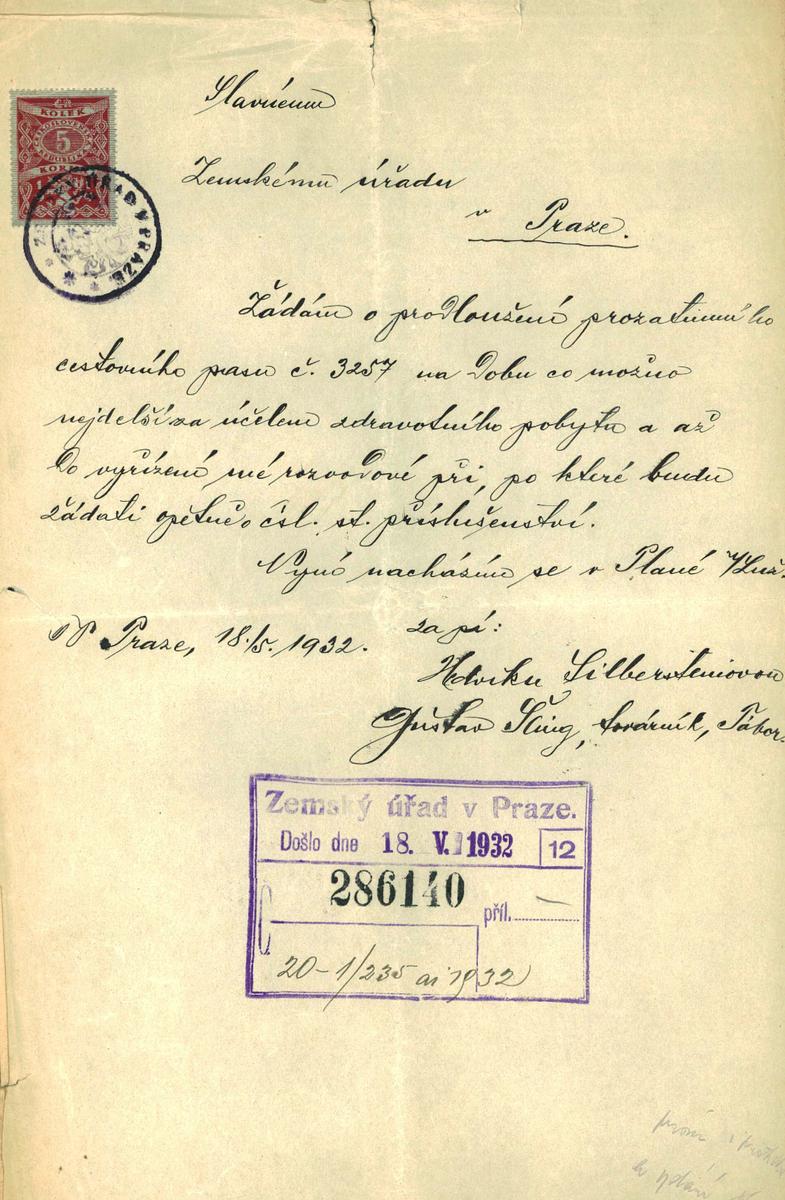 Slavnému
Zemskému úřadu
v Praze.
KOLEK
5
ZEMSKÝ ÚŘAD V PRAZE
Žádám o prodloužení prozatimního
cestovního pasu č. 3257 na dobu co možno
nejdelší za účelem zdravotního pobytu a až
do vyřízení mé rozvodové při, po které budu
žádati opětně o čsl. st. příslušenství.
Nyní nacházím se v Plané n/Luž.
V Praze, 18./5. 1932.
za pí:
Hedviku Silbersteinovou
Gustav Šling, továrník, Tábor.
Zemský úřad v Praze.
Došlo dne 18. V. 1932 12
286140
příl. —
20-1/235 ai 1932